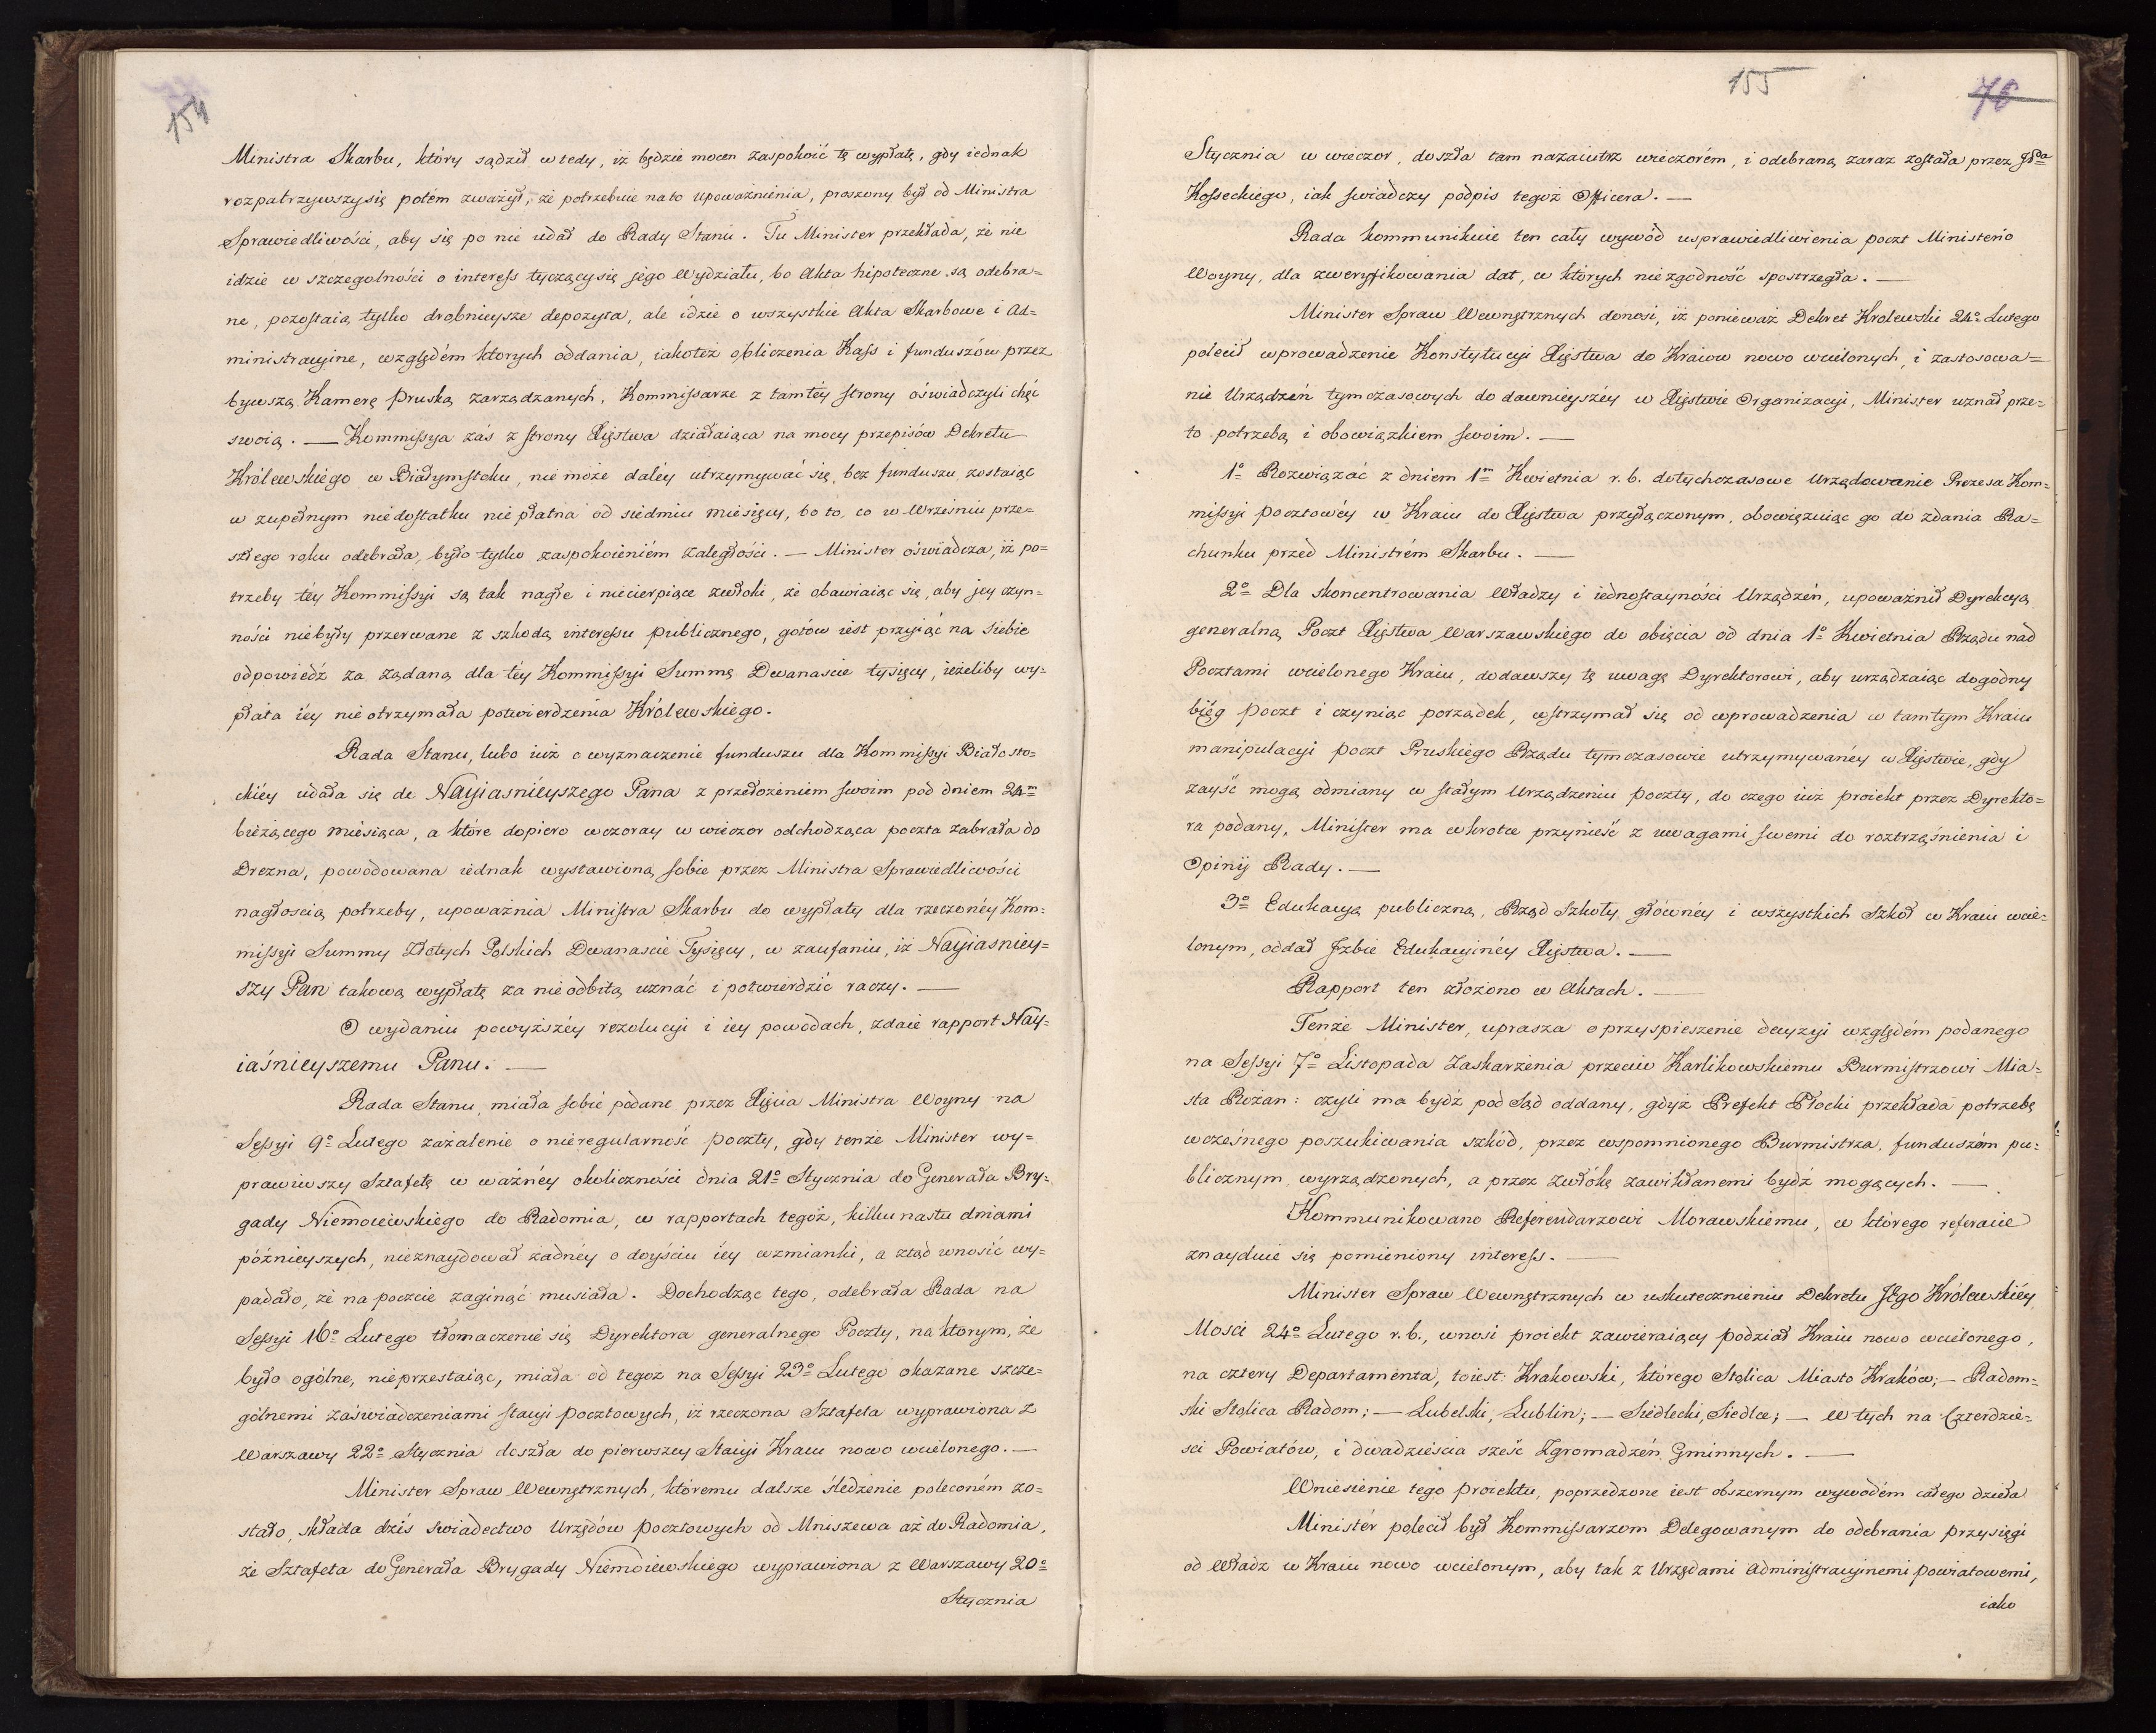 154
Ministra Skarbu, który sądził wtedy, iż będzie mocen zaspokoić tę wypłatę, gdy iednak
rozpatrzywszysię potém zważył, że potrzebuie nato upoważnienia, proszony był od Ministra
Sprawiedliwości, aby się po nie udał do Rady Stanu. Tu Minister przekłada, że nie
idzie w szczegolności o interess tyczącysię jego Wydziału, bo Akta hipoteczne są odebra=
ne, pozostaią tylko drobnieysze depozyta, ale idzie o wszystkie Akta Skarbowe i Ad=
ministracyine, względém ktorych oddania, iakoteż obliczenia Kass i funduszów przez
bywszą Kamerę Pruską zarządzanych, Kommissarze z tamtéy strony óświadczyli chęć
swoią. — Kommissya zaś z strony Xięstwa działaiąca na mocy przepisów Dekretu
Królewskiego w Białymstoku, nie może daléy utrzymywać się, bez funduszu zostaiąc
w zupełnym niedostatku nie płatna od siedmiu miesięcy, bo to, co w Wrześniu prze=
szłego roku odebrała, było tylko zaspokoieniém zaległości. — Minister óświadcza, iż po=
trzeby téy Kommissyi są tak nagłe i niecierpiące zwłoki, że obawiaiąc się, aby jey czyn=
ności niebyły przerwane z szkodą interessu publicznego, gotów iest przyiąć na siebie
odpowiedź za żądaną dla téy Kommissyi Summę Dwanascie tysięcy, ieżeliby wy=
płata iéy nie otrzymała potwierdzenia Królewskiego.
Rada Stanu, lubo iuż o wyznaczenie funduszu dla Kommissyi Białosto=
ckiéy udała się do Nayiaśnieyszego Pana z przełożeniem swoim pod dniem 24m
bieżącego miesiąca, a które dopiero wczoray w wieczor odchodząca poczta zabrała do
Drezna, powodowana iednak wystawioną sobie przez Ministra Sprawiedliwości
nagłoscią potrzeby, upoważnia Ministra Skarbu do wypłaty dla rzeczonéy Kom=
missyi Summy Złotych Polskich Dwanascie Tysięcy, w zaufaniu, iż Nayiasniey=
szy Pan takową wypłatę za nieodbitą uznać i potwierdzić raczy. —
O wydaniu powyższéy rezolucyi i iey powodach, zdaie rapport Nay=
iaśnieyszemu Panu. —
Rada Stanu, miała sobie podane przez Xięcia Ministra Woyny na
Sessyi 9o Lutego zażalenie o nieregularność poczty, gdy tenże Minister wy=
prawiwszy Sztafetę w ważnéy okoliczności dnia 21o Stycznia do Generała Bry=
gady Niemoiewskiego do Radomia, w rapportach tegoż, kilkunastu dniami
późnieyszych, nieznaydował żadnéy o doyściu iéy wzmianki, a ztąd wnosić wy=
padało, że na poczcie zaginąć musiała. Dochodząc tego, odebrała Rada na
Sessyi 16o Lutego tłomaczenie się Dyrektora generalnego Poczty, na ktorym, że
było ogólne, nieprzestaiąc, miała od tegoż na Sessyi 23o Lutego okazane szcze=
gólnemi zaświadczeniami stacyi pocztowych, iż rzeczona Sztafeta wyprawiona z
Warszawy 22o Stycznia doszła do pierwszey Stacyi Kraiu nowo wcielonego. —
Minister Spraw Wewnętrznych, któremu dalsze śledzenie poleconém zo=
stało, składa dziś swiadectwo Urzędów pocztowych od Mniszewa aż do Radomia,
że Sztafeta do Generała Brygady Niemoiewskiego wyprawiona z Warszawy 20o
Stycznia
155
76
Stycznia w wieczor, doszła tam nazaiutrz wieczorém, i odebraną zaraz została przez
Kosseckiego, iak swiadczy podpis tegoż Officera. —
Rada kommunikuie ten cały wywód usprawiedliwienia poczt Ministerio
Woyny, dla zweryfikowania dat, w których niezgodność spostrzegła. —
Minister Spraw Wewnętrznych donosi, iż ponieważ Dekret Krolewski 24o Lutego
polecił wprowadzenie Konstytucyi Xięstwa do Kraiow nowo wcielonych, i zastosowa=
nie Urządzeń tymczasowych do dawnieyszéy w Xięstwie Organizacyi, Minister uznał prze=
to potrzebą i obowiązkiem swoim. —
1o Rozwiązać z dniem 1m Kwietnia r. b. dotychczasowe Urzędowanie Prezesa Kom=
missyi pocztowéy w Kraiu do Xięstwa przyłączonym, obowiązuiąc go do zdania Ra=
chunku przed Ministrém Skarbu. —
2o Dla skoncentrowania Władzy i iednostayności Urządzeń, upoważnił Dyrekcyą
generalną Poczt Xięstwa Warszawskiego do obięcia od dnia 1o Kwietnia Rządu nad
Pocztami wcielonego Kraiu, dodawszy tę uwagę Dyrektorowi, aby urządzaiąc dogodny
bieg poczt i czyniąc porządek, wstrzymał się od wprowadzenia w tamtym Kraiu
manipulacyi poczt Pruskiego Rządu tymczasowie utrzymywanéy w Xięstwie, gdy
zayść mogą odmiany w stałym Urządzeniu poczty, do czego iuż proiekt przez Dyrekto=
ra podany, Minister ma wkrotce przynieść z uwagami swemi do roztrząśnienia i
Opinii Rady. —
3o Edukacyą publiczną, Rząd Szkoły głównéy i wszystkich Szkół w Kraiu wcie=
lonym, oddał Jzbie Edukacyinéy Xięstwa. —
Rapport ten złożono w Aktach. —
Tenże Minister, uprasza o przyspieszenie decyzyi względém podanego
na Sessyi 7o Listopada Zaskarżenia przeciw Karlikowskiemu Burmistrzowi Mia=
sta Rożan: czyli ma bydź pod Sąd oddany, gdyż Prefekt Płocki przekłada potrzebę
wcześnego poszukiwania szkód, przez wspomnionego Burmistrza, funduszóm pu=
blicznym wyrządzonych, a przez zwłokę zawikłanemi bydź mogących. —
Kommunikowano Referendarzowi Morawskiemu, w którego referacie
znayduie się pomieniony interess. —
Minister Spraw Wewnętrznych w uskutecznieniu Dekretu Jego Królewskiéy
Mosci 24o Lutego r. b., wnosi proiekt zawieraiący podział Kraiu nowo wcielonego,
na cztery Departamenta, toiest: Krakowski, którego Stolica Miasto Kraków; — Radom=
ski Stolica Radom; — Lubelski, Lublin; — Siedlecki, Siedlce; — W tych na Czterdzie=
sci Powiatów, i dwadzieścia sześć Zgromadzeń Gminnych. —
Wniesienie tego proiektu, poprzedzone iest obszernym wywodém całego dzieła
Ministér polecił był Kommissarzom Delegowanym do odebrania przysięgi
od Władz w Kraiu nowo wcielonym, aby tak z Urzędami Administracyinemi powiatowemi,
iako